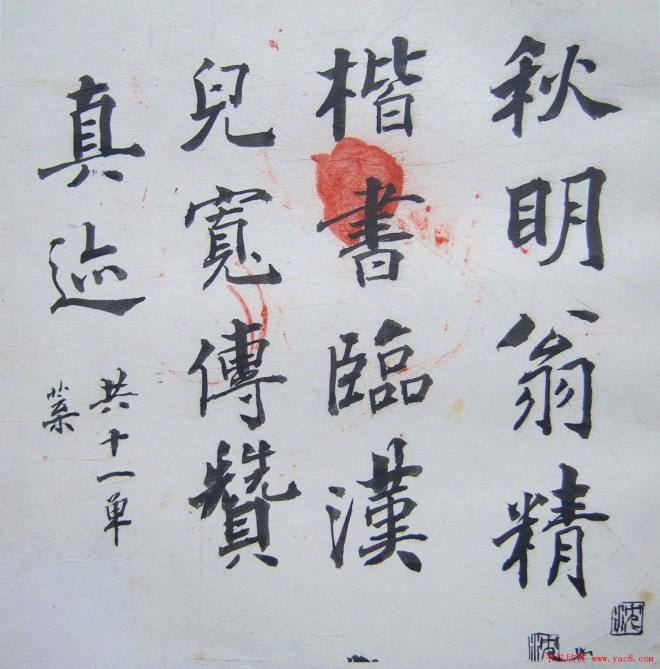 秋明翁精
楷書臨漢
兒寬傳贊
真迹
共十一单
葉
沈
沈
www.yac8.com